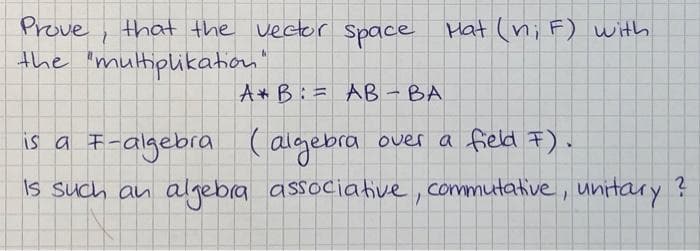 Prove, that the vector space Mat (n; F) with
the "multiplikation"
A * B := AB - BA
is a F-algebra (algebra over a field F).
Is such an algebra associative, commutative, unitary ?